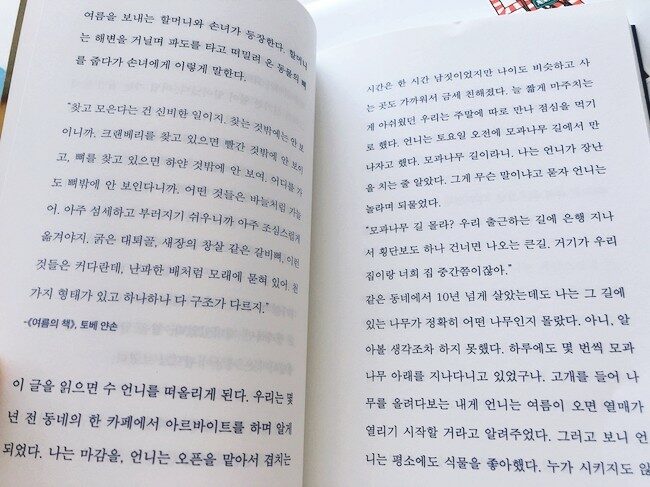 여름을 보내는 할머니와 손녀가 등장한다. 할머니
는 해변을 거닐며 파도를 타고 떠밀려 온 동물의 뼈
를 줍다가 손녀에게 이렇게 말한다.
"찾고 모은다는 건 신비한 일이지. 찾는 것밖에는 안 보
이니까. 크랜베리를 찾고 있으면 빨간 것밖에 안 보이
고, 뼈를 찾고 있으면 하얀 것밖에 안 보여. 어디를 가
도 뼈밖에 안 보인다니까. 어떤 것들은 바늘처럼 가늘
어. 아주 섬세하고 부러지기 쉬우니까 아주 조심스럽게
옮겨야지. 굵은 대퇴골, 새장의 창살 같은 갈비뼈. 이런
것들은 커다란데, 난파한 배처럼 모래에 묻혀 있어. 천
가지 형태가 있고 하나하나 다 구조가 다르지."
-《여름의 책》, 토베 얀손
이 글을 읽으면 수 언니를 떠올리게 된다. 우리는 몇
년 전 동네의 한 카페에서 아르바이트를 하며 알게
되었다. 나는 마감을, 언니는 오픈을 맡아서 겹치는
시간은 한 시간 남짓이었지만 나이도 비슷하고 사
는 곳도 가까워서 금세 친해졌다. 늘 짧게 마주치는
게 아쉬웠던 우리는 주말에 따로 만나 점심을 먹기
로 했다. 언니는 토요일 오전에 모과나무 길에서 만
나자고 했다. 모과나무 길이라니. 나는 언니가 장난
을 치는 줄 알았다. 그게 무슨 말이냐고 묻자 언니는
놀라며 되물었다.
"모과나무 길 몰라? 우리 출근하는 길에 은행 지나
서 횡단보도 하나 건너면 나오는 큰길. 거기가 우리
집이랑 너희 집 중간쯤이잖아."
같은 동네에서 10년 넘게 살았는데도 나는 그 길에
있는 나무가 정확히 어떤 나무인지 몰랐다. 아니, 알
아볼 생각조차 하지 못했다. 하루에도 몇 번씩 모과
나무 아래를 지나다니고 있었구나. 고개를 들어 나
무를 올려다보는 내게 언니는 여름이 오면 열매가
열리기 시작할 거라고 알려주었다. 그러고 보니 언
니는 평소에도 식물을 좋아했다. 누가 시키지도 않